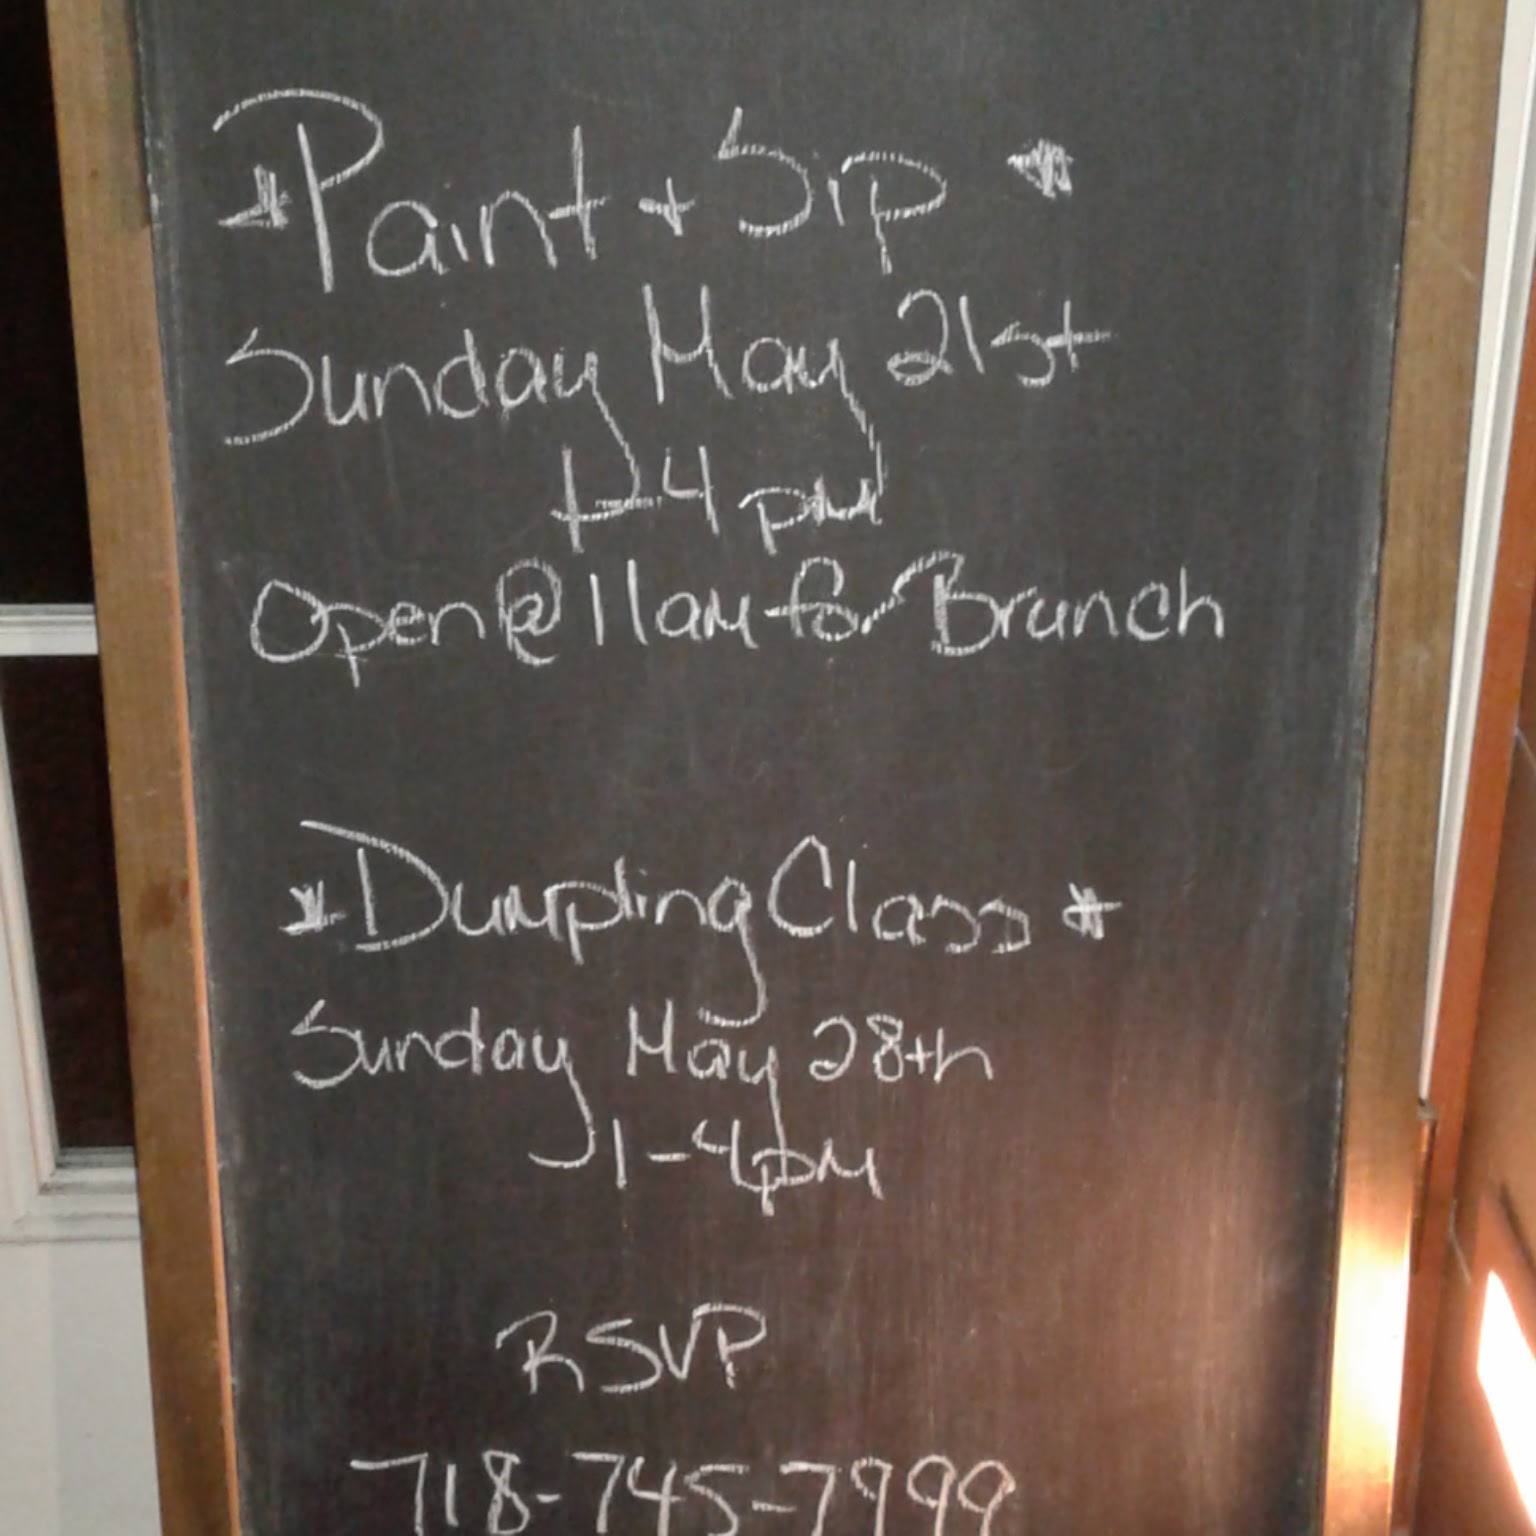 *Paint + Sip *
Sunday May 21st
1-4 pm
Open @ 11am for Brunch
*Dumpling Class *
Sunday May 28th
1-4pm
RSVP
718-745-7999